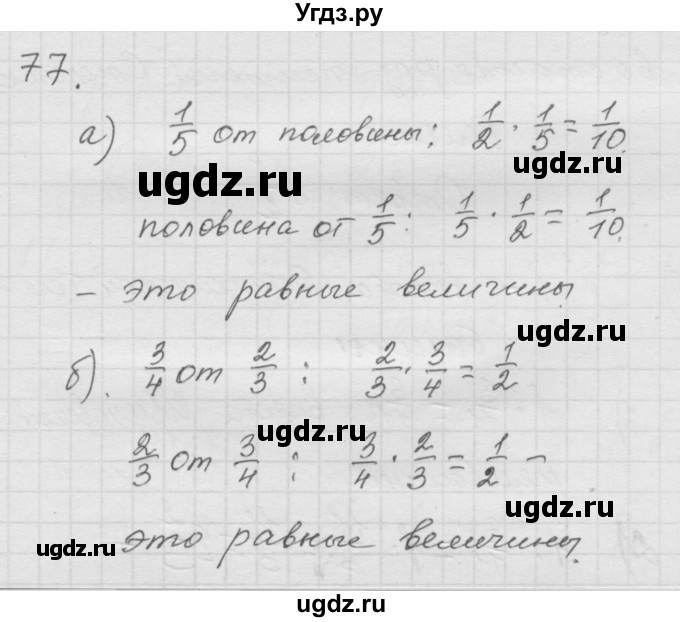 Угдз.ру
77.
а) 1/5 от половины: 1/2 · 1/5 = 1/10.
ugdz.ru
ugdz.ru
половина от 1/5: 1/5 · 1/2 = 1/10.
– это равные величины
ugdz.ru
б). 3/4 от 2/3 : 2/3 · 3/4 = 1/2
ugdz.ru
2/3 от 3/4 : 3/4 · 2/3 = 1/2 –
ugdz.ru
это равные величины.
ugdz.ru
ugdz.ru
ugdz.ru